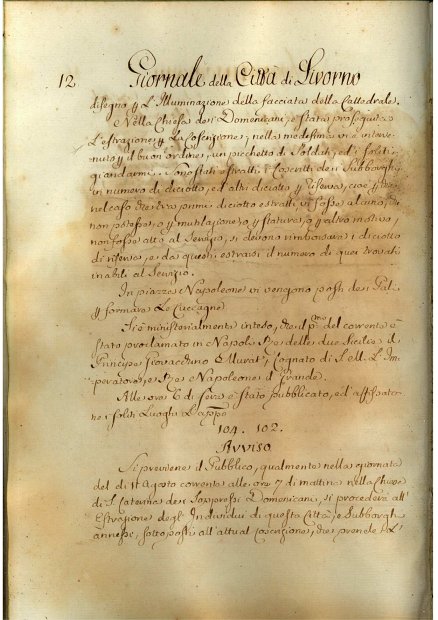 12 Giornale della Città di Livorno
disegno p L'Illuminazione della facciata della Cattedrale.
Nella Chiesa dei Domenicani, è stata proseguita
L'estrazione p La Coscrizione; nella medesima vi è interve-
nuto p il buon ordine, un picchetto di Soldati, ed i soliti
giandarmi: Sono stati estratti i Coscritti dei Subborghi
in numero di diciotto, ed altri diciotto p riserva, cioè p
nel caso che tra i primi diciotto estratti vi fosse alcuno, che
non potesse, o p mutilazione, o p statura, o p altro motivo,
non fosse atto al servizio, si devono rimborsare i diciotto
di riserva, e da questi estrarsi il numero di quei trovati
inabili al servizio.
In piazza Napoleone vi vengono posti dei Pali
p formare Le Cuccagne
Si è ministerialmente inteso, che il p.mo del corrente è
stato proclamato in Napoli Rè delle due Sicilie il
Principe Giovacchino Murat, Cognato di S. M. L'Im-
peratore, e Rè Napoleone il Grande.
Alle ore 6 di sera è stato pubblicato, ed affisso
ne i soliti Luoghi L'app.
104. 102.
Avviso
Si previene il Pubblico, qualmente nella giornata
del dì 11 Agosto corrente alle ore 7 di mattina nella Chiesa
di S. Caterina dei Soppressi Domenicani, si procederà all'
Estrazione degl'Individui di questa Città, e Subborghi
annessi, sottoposti all'attual Coscrizione, che prende L'